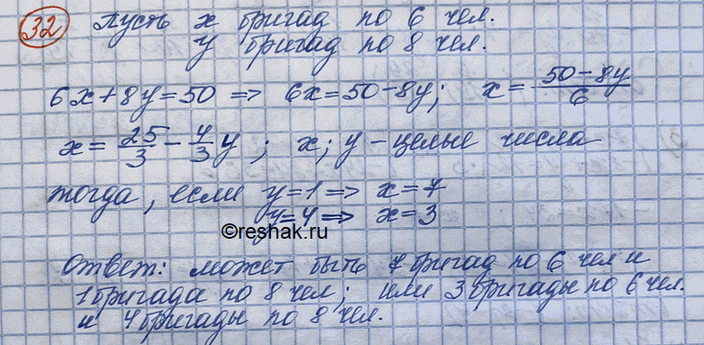 32 Пусть x бригад по 6 чел.
y бригад по 8 чел.
6x+8y=50 => 6x=50-8y; x= (50-8y)/6
x= 25/3 - 4/3 y ; x; y - целые числа
тогда, если y=1 => x=7
y=4 => x=3
©reshak.ru
Ответ: может быть 7 бригад по 6 чел и
1 бригада по 8 чел; или 3 бригады по 6 чел.
и 4 бригады по 8 чел.